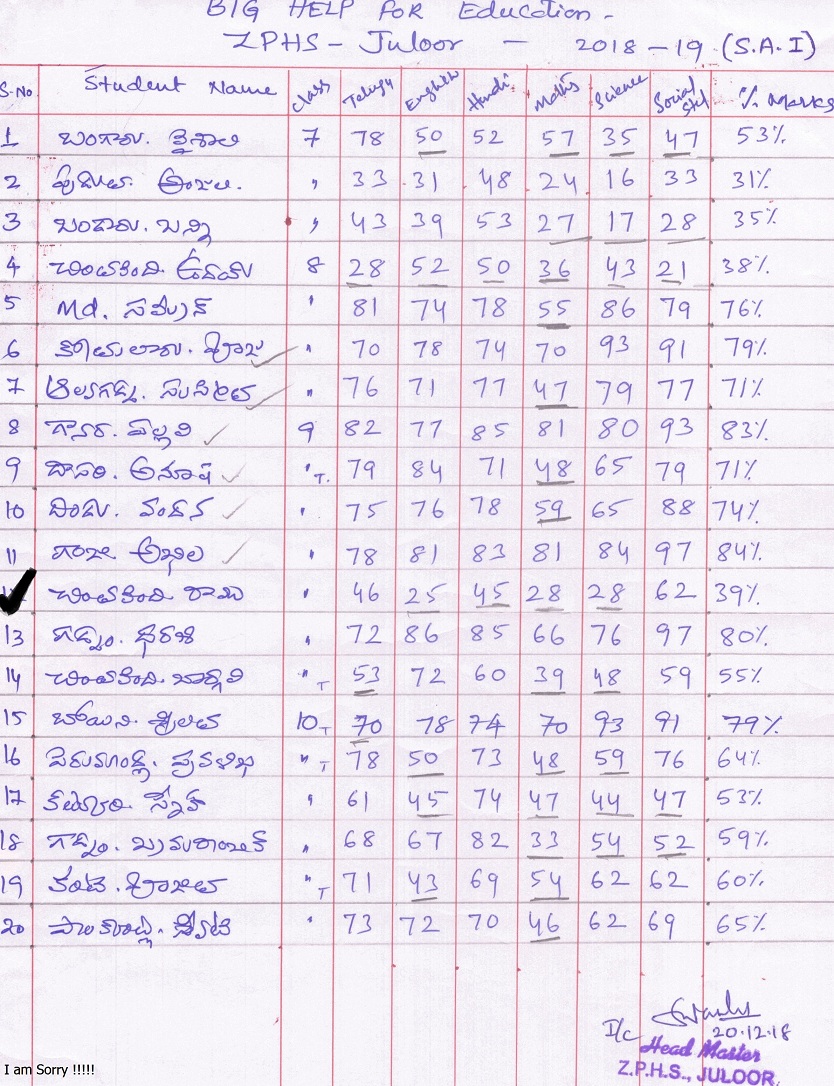 BIG HELP FOR Education -
ZPHS - Juloor - 2018-19 (S.A.I)
S.No Student Name class Telugu English Hindi Maths Science Social Std % Marks
1 బంగారు. వైశాలి 7 78 50 52 57 35 47 53%
2 అంజలి. " 33 31 48 24 16 33 31%
3 బండారు. బన్ని " 43 39 53 27 17 28 35%
4 చింతకింది. ఉదయ్ 8 28 52 50 36 43 21 38%
5 Md. " 81 74 78 55 86 79 76%
6 " 70 78 74 70 93 91 79%
7 " 76 71 77 47 79 77 71%
8 పల్లవి 9 82 77 85 81 80 93 83%
9 దాసరి. అనూష " T. 79 84 71 48 65 79 71%
10 దిండు. వందన " 75 76 78 59 65 88 74%
11 గంజి అఖిల " 78 81 83 81 84 97 84%
చింతకింది రాము " 46 25 45 28 28 62 39%
13 గడ్డం. ధరణి " 72 86 85 66 76 97 80%
14 చింతకింది. భార్గవి " T 53 72 60 39 48 59 55%
15 బోయిని. శ్రీలత 10 T 70 78 74 70 93 91 79%
16 పెరుమాండ్ల. ప్రవళిక " T 78 50 73 48 59 76 64%
17 " 61 45 74 47 44 47 53%
18 గడ్డం. " 68 67 82 33 54 52 59%
19 కంటె. " T 71 43 69 54 62 62 60%
20 " 73 72 70 46 62 69 65%
I/c
20.12.18
Head Master
Z.P.H.S., JULOOR.
I am Sorry !!!!!